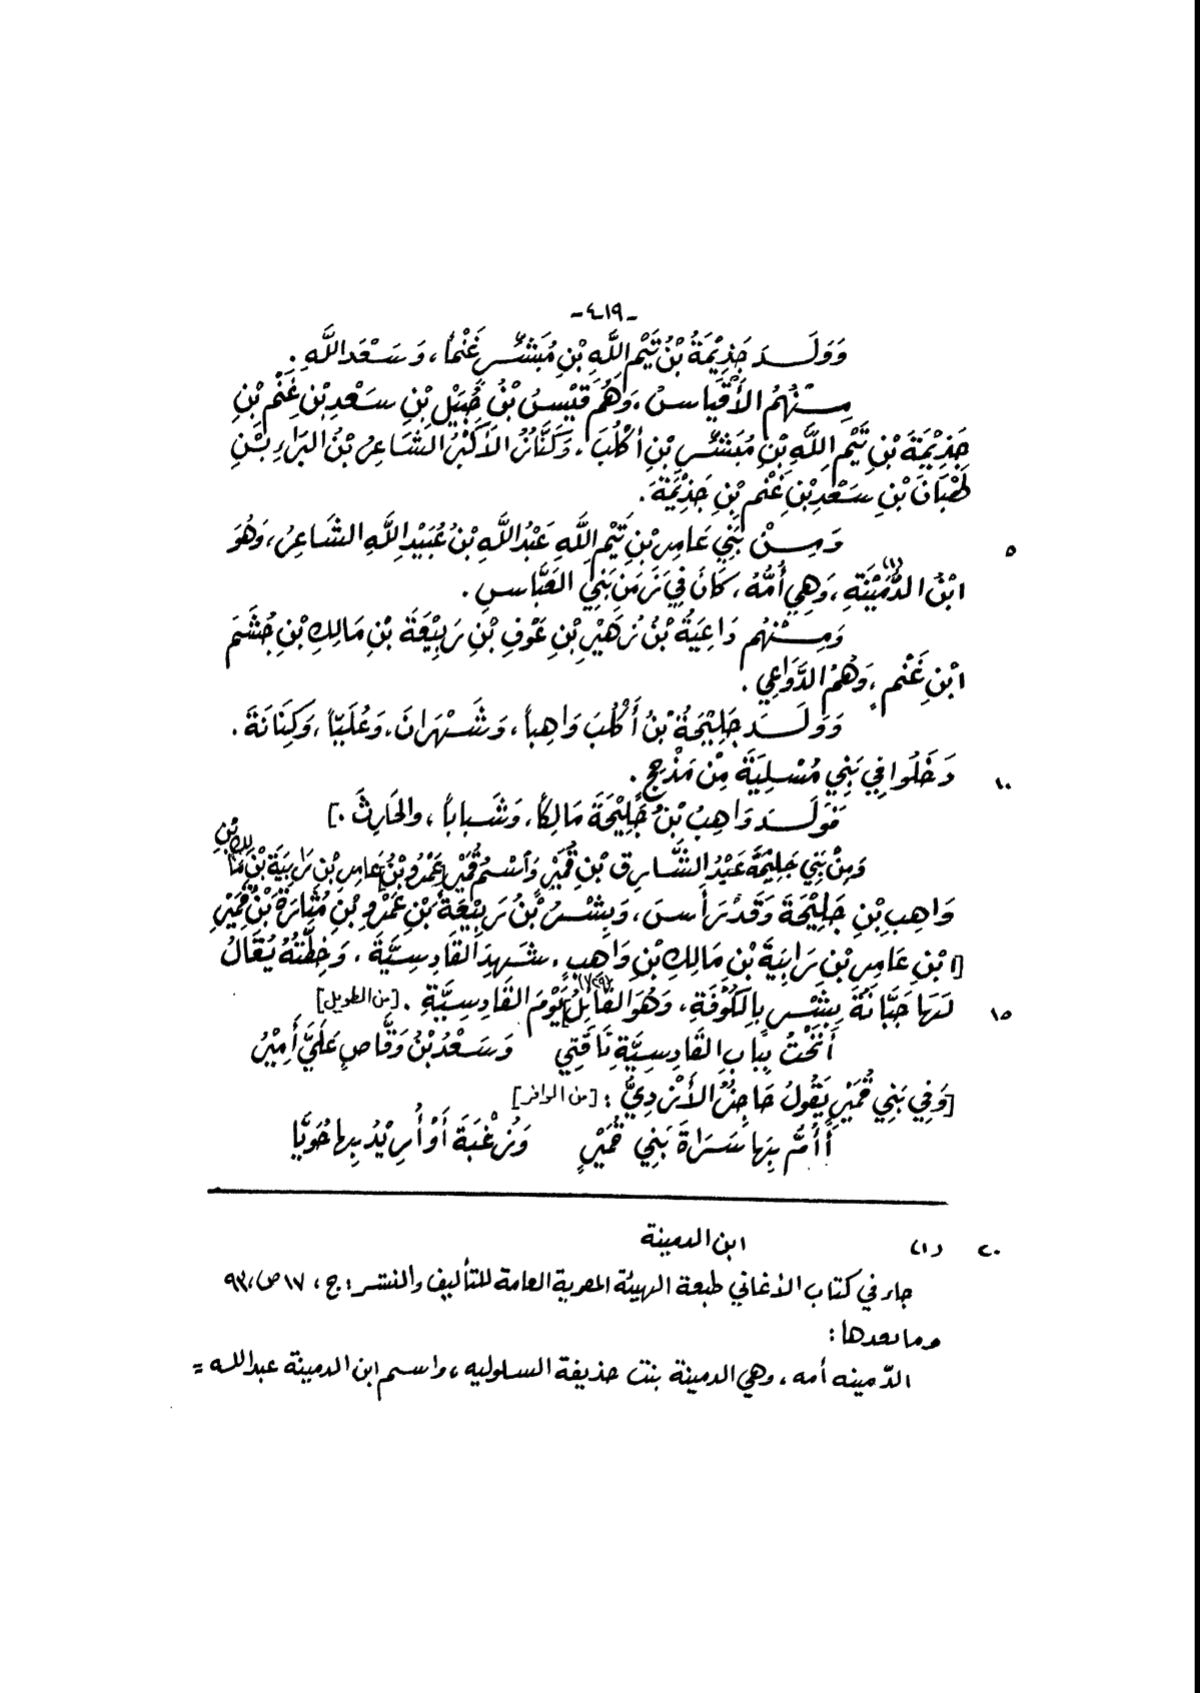 -٤١٩-
وَوَلَـــدَ جَذِيْمَةُ بْنُ تَيْمِ اللَّهِ بْنِ مُبَشِّرٍ غَنْماً، وَسَعْدَاللَّهِ.
مِنْهُم الأَقْيَاسُ، وَهُم قَيْسُ بْنُ جُبَيْلِ بْنِ سَعْدِ بْنِ غَنْمِ بْنِ
جَذِيْمَةَ بْنِ تَيْمِ اللَّهِ بْنِ مُبَشِّرِ بْنِ أَكْلُبَ، وَكَنَّازُ الأَكْبَرُ الشَّاعِرُ بْنُ البَرَاءِ بْنِ
ظَبْيَانَ بْنِ سَعْدِ بْنِ غَنْمِ بْنِ جَذِيْمَةَ.
وَمِنْ بَنِي عَامِرِ بْنِ تَيْمِ اللَّهِ عَبْدُ اللَّهِ بْنُ عُبَيْدِ اللَّهِ الشَّاعِرُ، وَهُوَ ٥
ابْنُ الدُّمَيْنَةِ (١)، وَهِيَ أُمُّهُ، كَانَ فِي زَمَنِ بَنِي العَبَّاسِ.
وَمِنْهُم دَاعِيَةُ بْنُ زُهَيْرِ بْنِ عَوْفِ بْنِ رَبِيْعَةَ بْنِ مَالِكِ بْنِ جُشَمَ
ابْنِ غَنْمٍ، وَهُمُ الدَّوَاعِي.
وَوَلَـــدَ جَلِيْحَةُ بْنُ أَكْلُبَ وَاهِباً، وَشَهْرَانَ، وَعُلَيّاً، وَكِنَانَةَ.
دَخَلُوا فِي بَنِي مُسْلِيَةَ مِنْ مَذْحِجٍ. ١٠
فَوَلَـــدَ وَاهِبُ بْنُ جَلِيْحَةَ مَالِكاً، وَشَبَاباً، والحَارِثَ.]
وَمِنْ بَنِي جَلِيْحَةَ عَبْدُ الشَّارِقِ بْنِ قُمَيْرٍ وَأسْمُ قُمَيْرٍ [عَمْرُو بْنُ] عَامِرِ بْنِ رَابِيَةَ بْنِ مَالِكِ بْنِ
وَاهِبِ بْنِ جَلِيْحَةَ وَقَدْ رَأسَ، وَبِشْرُ بْنُ رَبِيْعَةَ بْنِ عَمْرِو بْنِ مُثَارَةَ بْنِ قُمَيْرِ
[ابْنِ عَامِرِ بْنِ رَابِيَةَ بْنِ مَالِكِ بْنِ وَاهِبٍ، شَهِدَ القَادِسِيَّةَ، وَخِطَّتُهُ يُقَالُ
لَهَا جَبَّانَةُ بِشْرٍ بِالكُوْفَةِ، وَهُوَ القَائِلُ] يَوْمَ القَادِسِيَّةِ. [من الطويل] ١٥
أَنَخْتُ بِبَابِ القَادِسِيَّةِ نَاقَتِي وَسَعْدُ بْنُ وَقَّاصٍ عَلَيَّ أَمِيْرُ
[وَفِي بَنِي قُمَيْرٍ يَقُولُ حَاجِزُ الأَزْدِيُّ: [من الوافر]
أَأُمُّ بِهَا سَرَاةَ بَنِي قُمَيْرٍ وَزُغْبَةَ أَوْ أُرِيْدُ بِهَا حُوَيَّا
٢٠ (١) ابن الدمينة
جاء في كتاب الأغاني طبعة الهيئة المصرية العامة للتأليف والنشر: ج، ١٧ ص، ٩٣
وما بعدها:
الدّمينه أمه، وهي الدمينة بنت حذيفة السلوليه، واسم ابن الدمينة عبدالله =